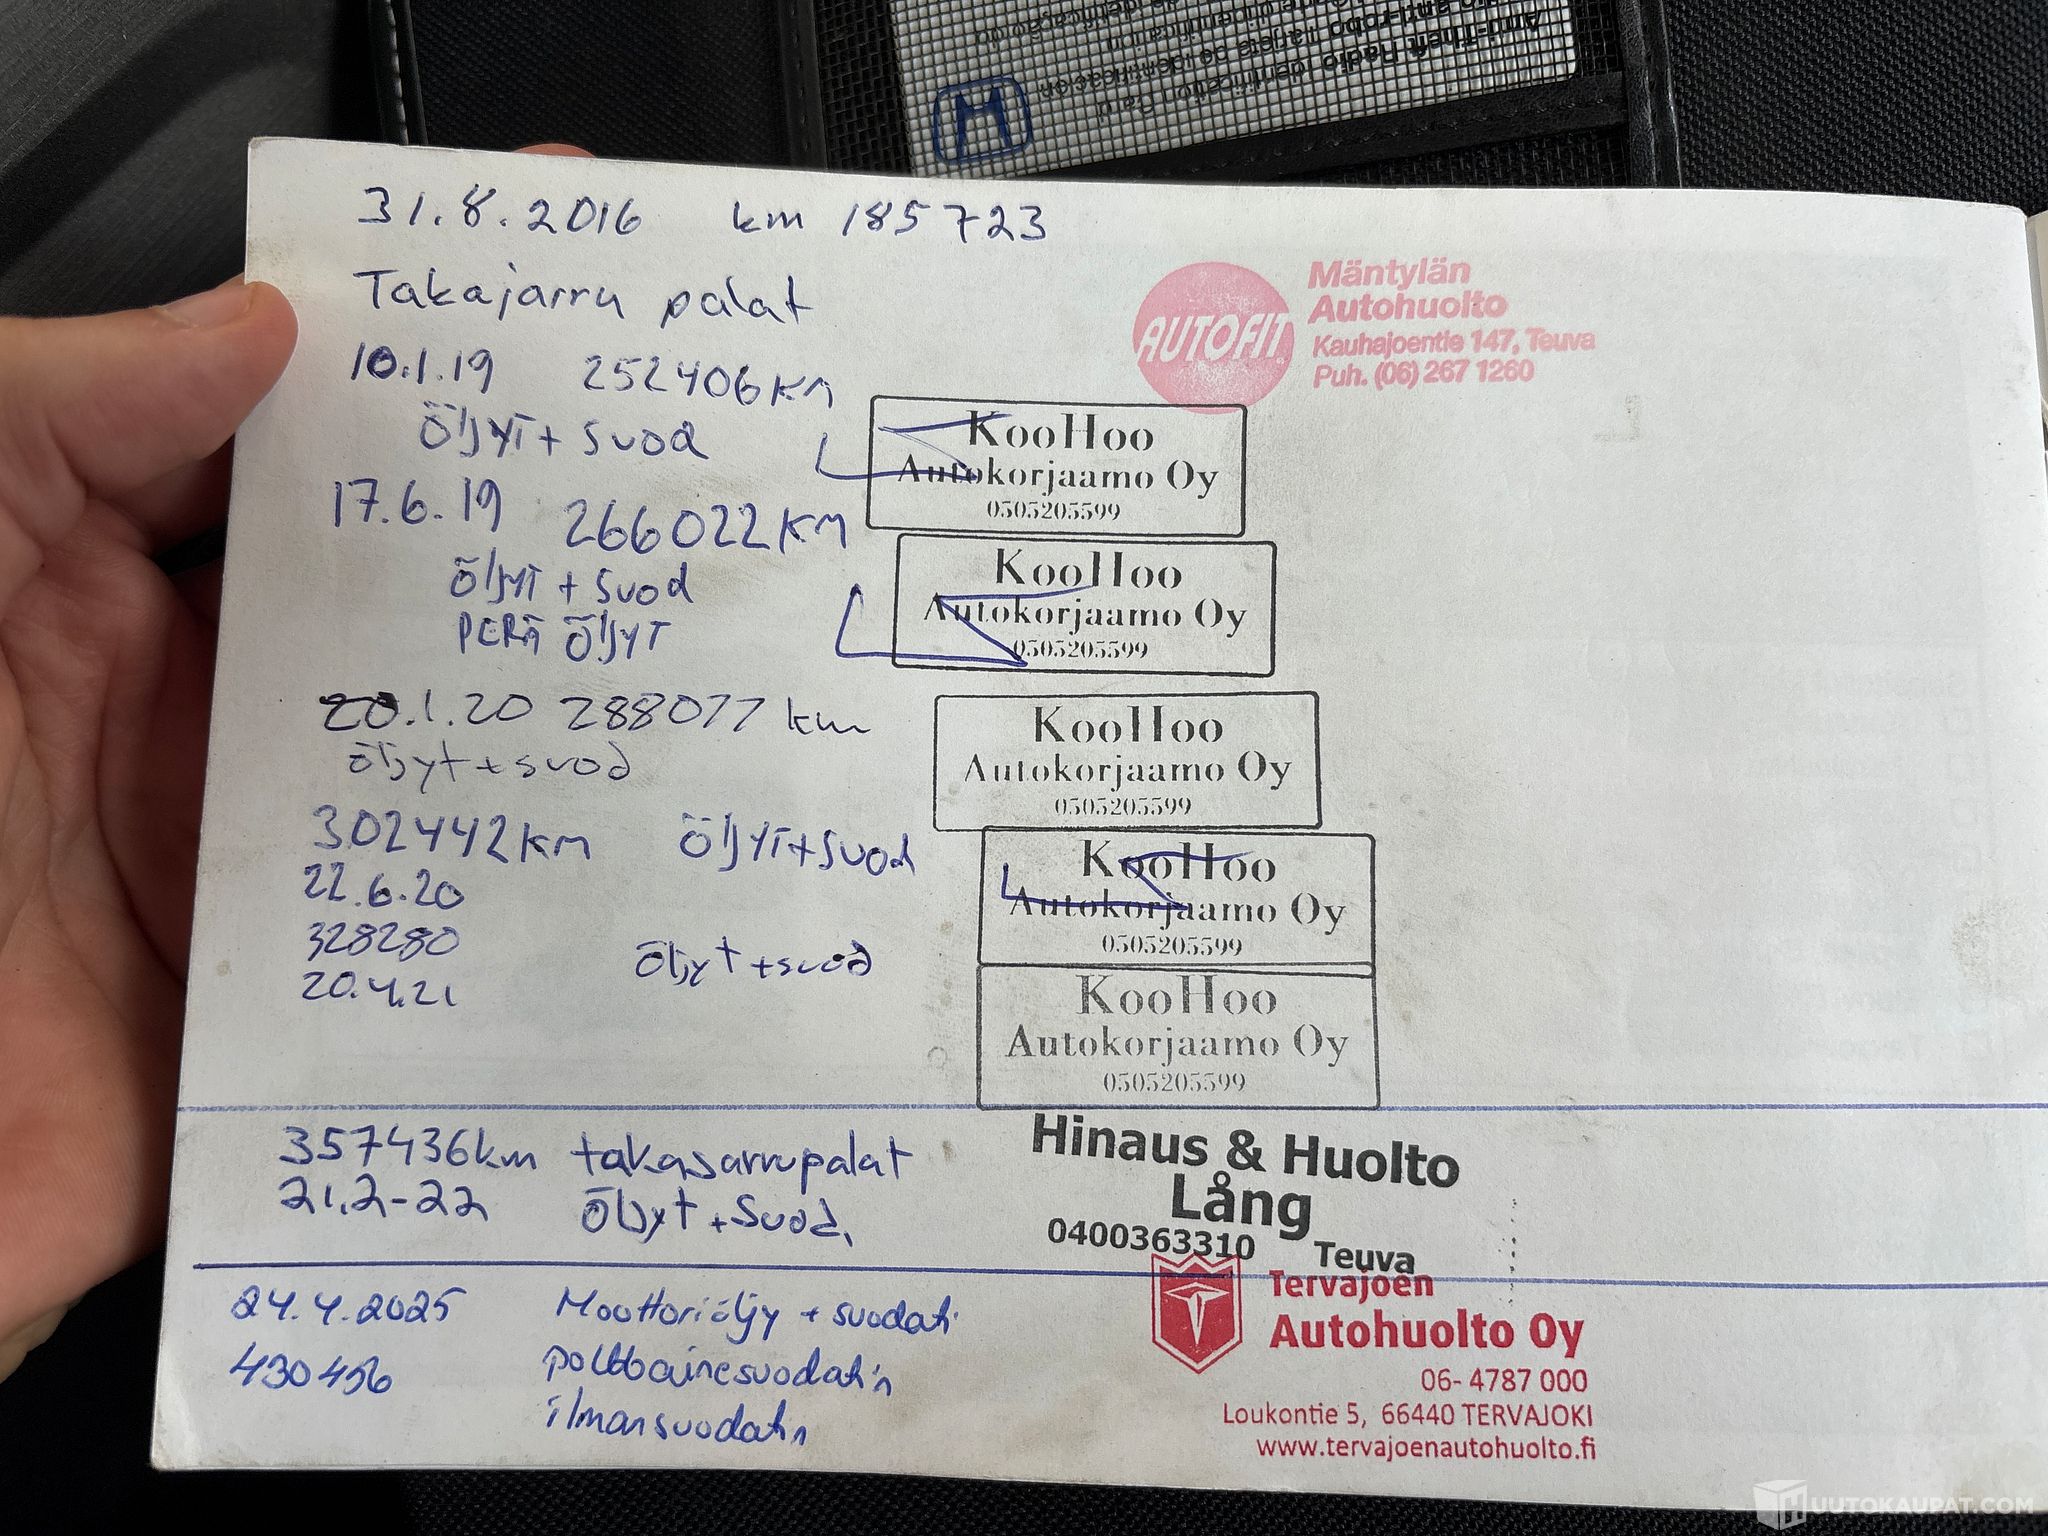 Anti-Theft Radio Identification Card
31.8.2016 km 185723
Takajarru palat
AUTOFIT
Mäntylän
Autohuolto
Kauhajoentie 147, Teuva
Puh. (06) 267 1260
10.1.19 252406 KM
Öljyt + suod
KooHoo
Autokorjaamo Oy
0505205599
17.6.19 266022 KM
Öljyt + suod
PERÄ Öljyt
KooHoo
Autokorjaamo Oy
0505205599
20.1.20 288077 km
öljyt + suod
KooHoo
Autokorjaamo Oy
0505205599
302442 KM Öljyt + suod
22.6.20
KooHoo
Autokorjaamo Oy
0505205599
328280
20.4.21
Öljyt + suod
KooHoo
Autokorjaamo Oy
0505205599
357436 km takajarrupalat
21.2-22 Öljyt + Suod.
Hinaus & Huolto
Lång
0400363310 Teuva
24.4.2025 Moottoriöljy + suodatin
430456 polttoainesuodatin
ilmansuodatin
Tervajoen
Autohuolto Oy
06- 4787 000
Loukontie 5, 66440 TERVAJOKI
www.tervajoenautohuolto.fi
HUUTOKAUPAT.COM